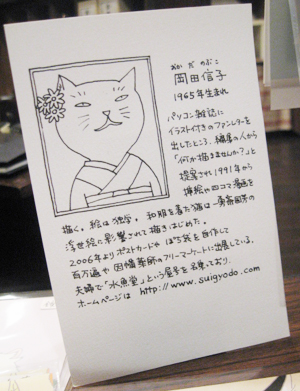 おかだ のぶこ
岡田信子
1965年生まれ
パソコン雑誌に
イラスト付きのファンレターを
出したところ、編集の人から
「何か描きませんか?」と
提案され1991年から
挿絵や四コマ漫画を
描く。絵は独学。和服を着た猫は一勇斎国芳の
浮世絵に影響されて描きはじめた。
2006年よりポストカードや ぽち袋を自作して
百万遍や因幡薬師のフリーマーケットに出展している。
夫婦で「水魚堂」という屋号を名乗っており
ホームページは http://www.suigyodo.com